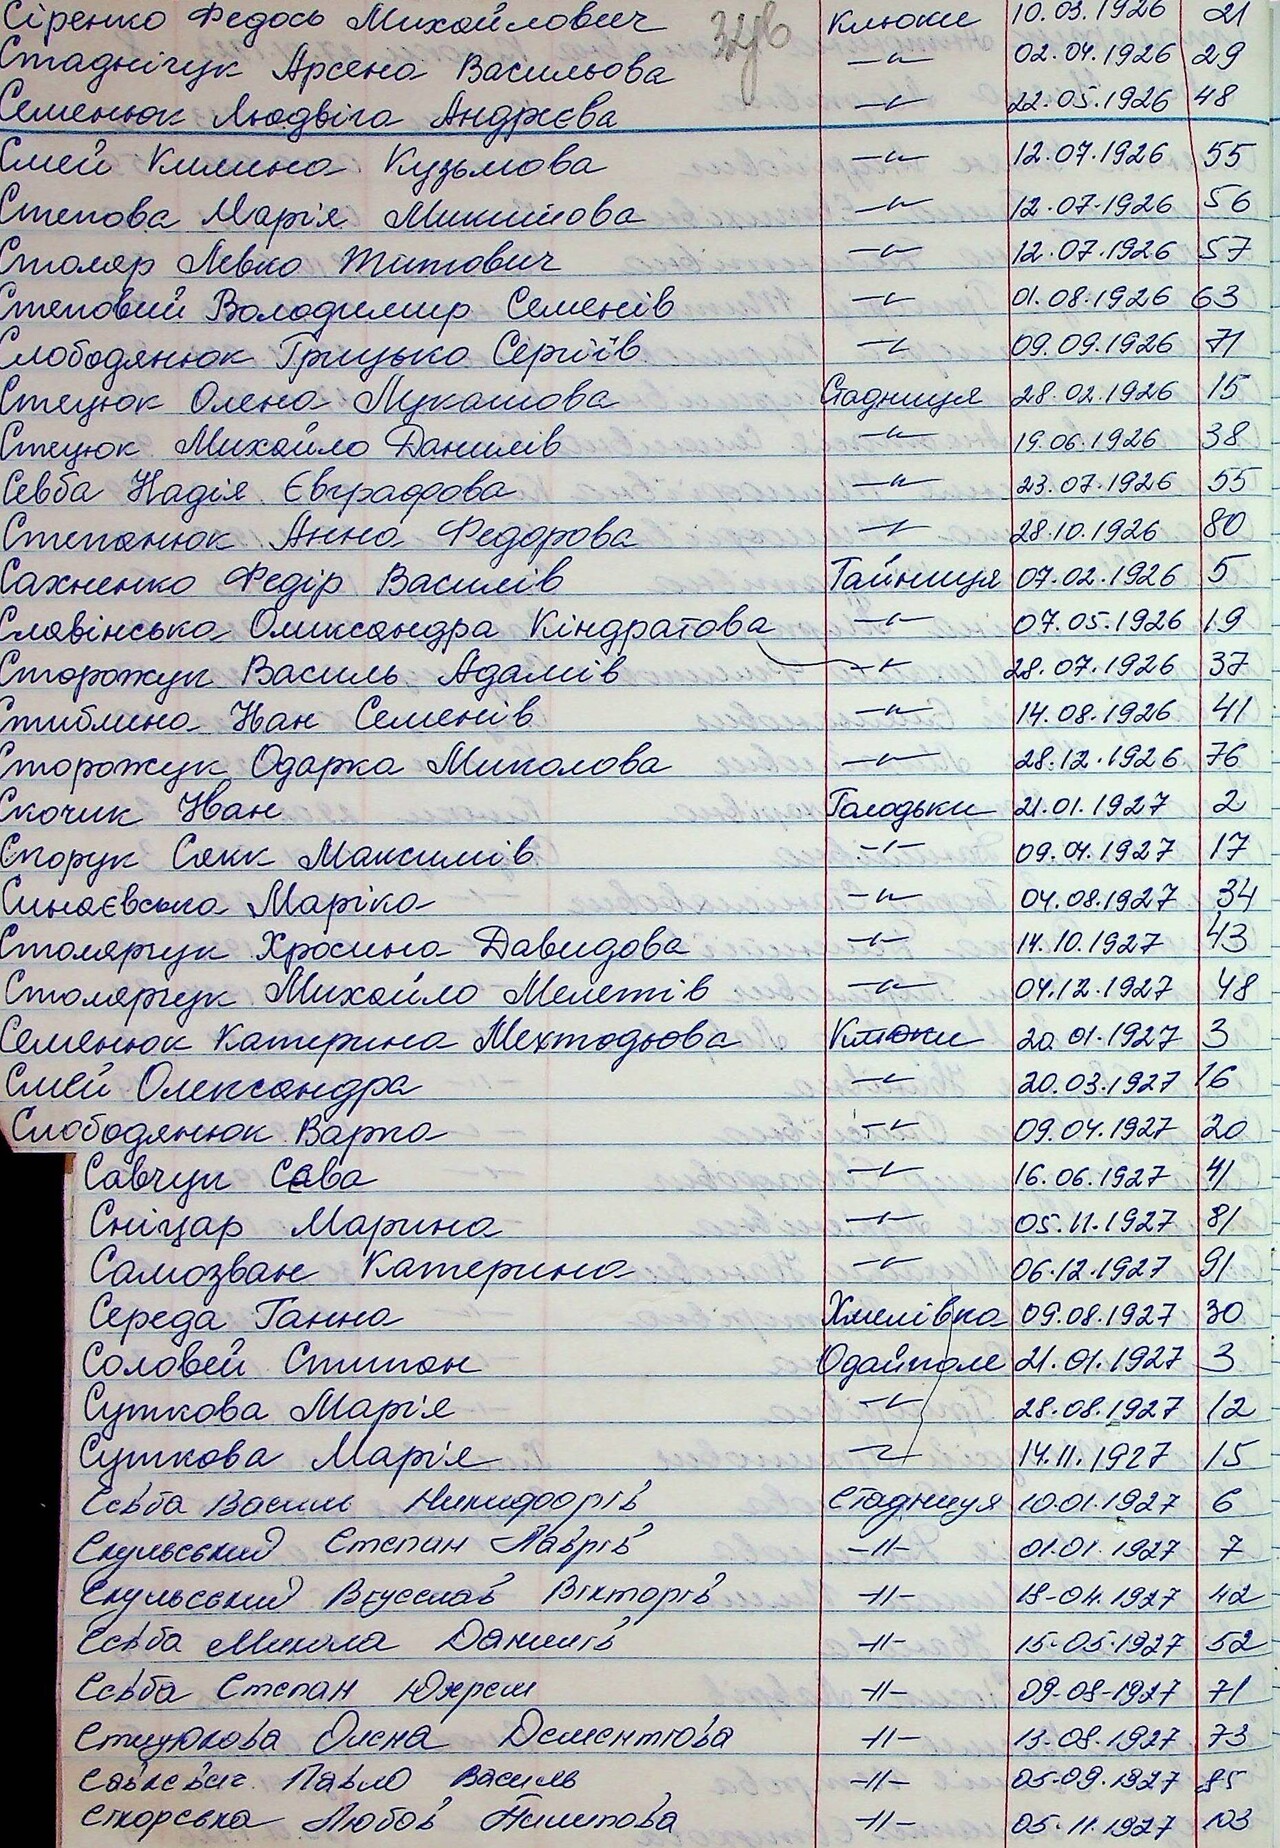 Сіренко Федось Михайлович Клюки 10.03.1926 21
Стаднічук Арсена Васильова —"— 02.04.1926 29
Семенюк Людвіга Андрієва —"— 22.05.1926 48
Смей Килина Кузьмова —"— 12.07.1926 55
Степова Марія Микитова —"— 12.07.1926 56
Столяр Левко Титович —"— 12.07.1926 57
Степовий Володимир Семенів —"— 01.08.1926 63
Слободянюк Грицько Сергіїв —"— 09.09.1926 71
Стецюк Олена Лукашова Стадниця 28.02.1926 15
Стецюк Михайло Данилів —"— 19.06.1926 38
Севба Надія Євграфова —"— 23.07.1926 55
Степанюк Анна Федорова —"— 28.10.1926 80
Сахненко Федір Василів Тайниця 07.02.1926 5
Славінська Оликсандра Кіндратова —"— 07.05.1926 19
Сторожук Василь Адамів —"— 28.07.1926 37
Стиблина Іван Семенів —"— 14.08.1926 41
Сторожук Одарка Миколова —"— 28.12.1926 76
Скочик Іван Голодьки 21.01.1927 2
Спорук Сякк Максимів —"— 09.04.1927 17
Синаєвська Маріка —"— 04.08.1927 34
Столярчук Хросина Давидова —"— 14.10.1927 43
Столярчук Михайло Мелетів —"— 04.12.1927 48
Семенюк Катерина Мехтодьова Клюки 20.01.1927 3
Смей Олександра —"— 20.03.1927 16
Слободянюк Варка —"— 09.04.1927 20
Савчук Сава —"— 16.06.1927 41
Сніцар Марина —"— 05.11.1927 81
Самозван Катерина —"— 06.12.1927 91
Середа Ганна Хмелівка 09.08.1927 30
Соловей Стипан Одайполе 21.01.1927 3
Суткова Марія —"— 28.08.1927 12
Суткова Марія —"— 14.11.1927 15
Сєвба Василь Никифорів Стадниця 10.01.1927 6
Скульський Степан Лаврів —"— 01.01.1927 7
Скульський Вікторів —"— 18-04.1927 42
Сєвба Микола Данилів —"— 15-05-1927 52
Сєвба Степан Юхрем —"— 09-08-1927 71
Стицюкова Олена Дементієва —"— 13-08.1927 73
Павло Василь —"— 05-09.1927 85
Сікорська Любов Пилипова —"— 05.11.1927 103